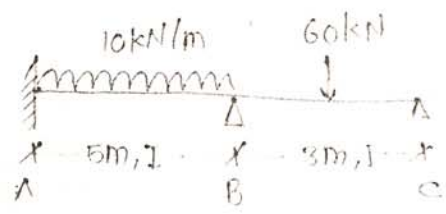 10kN/m 60kN
5m, I 3m, I
A B C